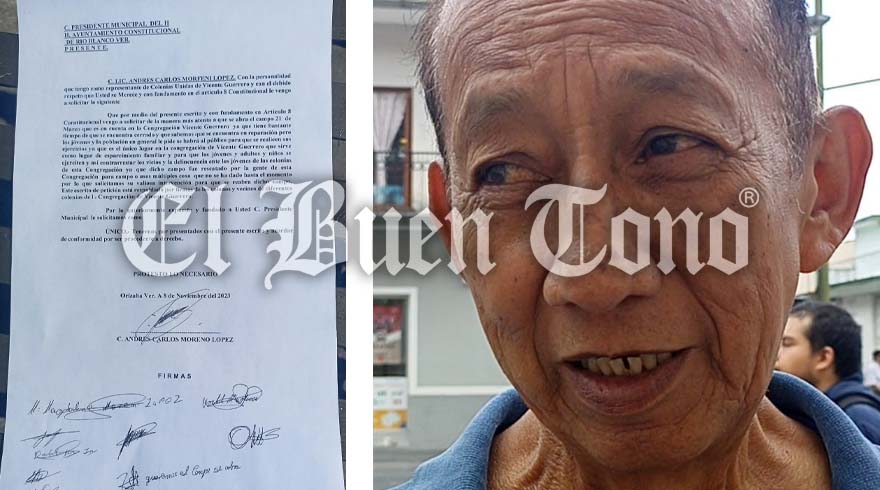 C. PRESIDENTE MUNICIPAL DEL H
H. AYUNTAMIENTO CONSTITUCIONAL
DE RIO BLANCO VER.
P R E S E N T E.
C. LIC. ANDRES CARLOS LOPEZ, Con la personalidad
que tengo como representante de Colonias Unidas de Vicente Guerrero y con el debido
respeto que Usted se Merece y con fundamento en el articulo 8 Constitucional le vengo
a solicitar lo siguiente
Que por medio del presente escrito y con fundamento en Articulo 8
Constitucional vengo a solicitar de la manera mas a que se abra el campo 21 de
Marzo que es en cuenta en la Congregación Vicente Guerrero ya que tiene bastante
tiempo de que se encuentra cerrado y que sabemos que se encuentra en reparación pero
los jóvenes y la población en general le pide se habrá al público para que se realicen sus
ejercicios ya que es el único lugar en la congregación de Vicente Guerrero que sirve
como lugar de esparcimiento familiar y para que los jóvenes y adultos y niños se
ejerciten y así contrarrestar los vicios y la delincuencia entre los jóvenes de las colonias
de esta Congregación ya que dicho campo fue rescatado por la gente de esta
Congregación para campo o usos múltiples cosa que no se ha dado hasta el momento
por lo que solicitamos su valiosa para que se dicho
Este escrito de petición está por vecinos de diferentes
colonias de Congregación Vicente Guerrero
Por lo anteriormente y fundado a Usted C. Presidente
Municipal le solicitamos
ÚNICO.- por presentados con el presente escrito y acordar
de conformidad por ser procedente a derecho.
El Buen Tono®
PROTESTO LO NECESARIO
Orizaba Ver. A 8 de Noviembre del 2023
C. ANDRES CARLOS MORENO LOPEZ
FIRMAS
queremos el Campo se abra